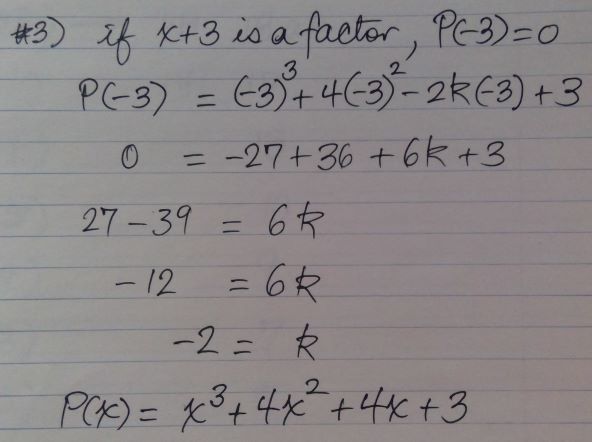 #3) if x+3 is a factor, P(-3)=0
P(-3) = (-3)³+4(-3)²-2k(-3)+3
0 = -27+36+6k+3
27-39 = 6k
-12 = 6k
-2 = k
P(x) = x³+4x²+4x+3